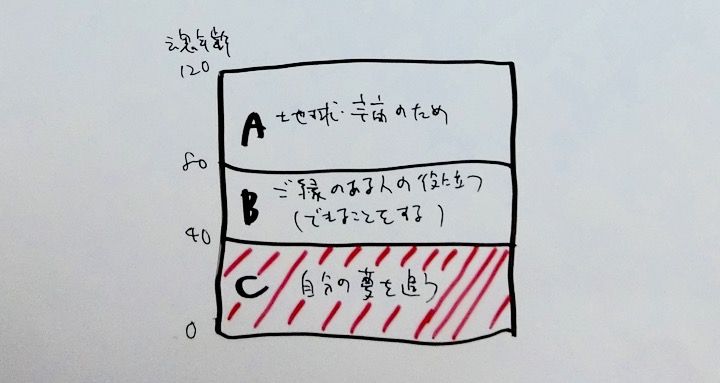 魂年齢
120
A 地球・幸福のため
80
B ご縁のある人の役立つ
(できることをする)
40
C 自分の夢を追う
0